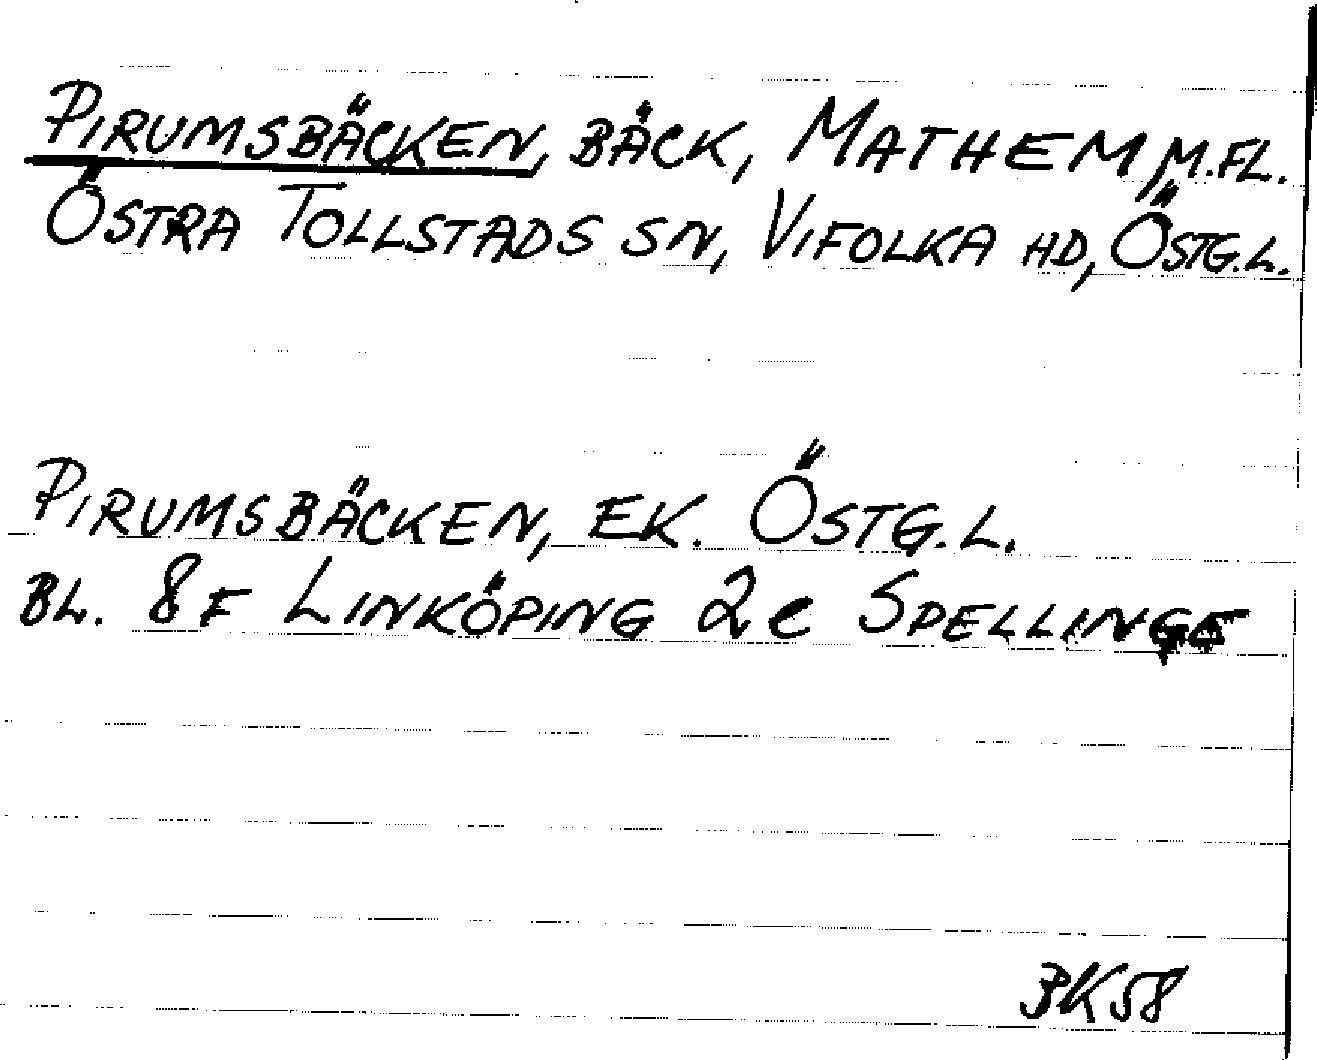 PIRUMSBÄCKEN, BÄCK, MATHEM, M.FL.
ÖSTRA TOLLSTADS SN, VIFOLKA HD, ÖSTG.L.
PIRUMSBÄCKEN, EK. ÖSTG.L.
BL. 8F LINKÖPING 2e SPELLINGE
BK58